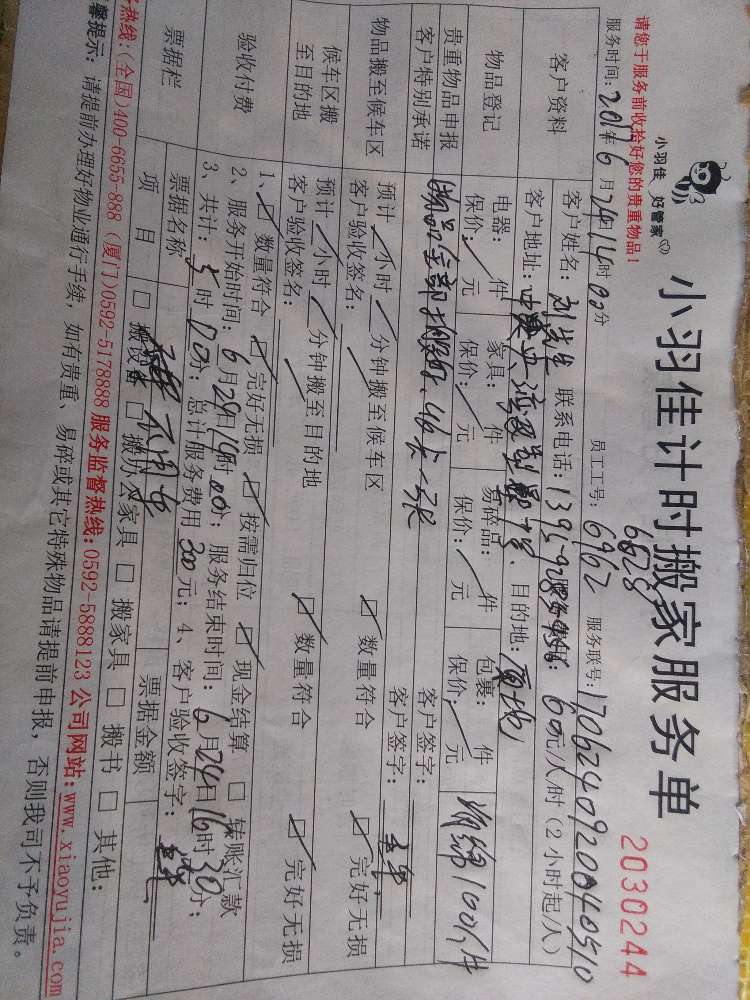 小羽佳 好管家
小羽佳计时搬家服务单
2030244
请您于服务前收拾好您的贵重物品!
服务时间:2017年6月24日14时00分 员工工号:6962 6628 服务联号:1706240920040510
客户资料
客户姓名: 联系电话: 60元/人/时(2小时起/人)
客户地址: 目的地:
物品登记
电器: 件 家具: 件 易碎品: 件 包裹: 件
保价: 元 保价: 元 保价: 元 保价: 元
贵重物品申报
客户特别承诺
客户签字:
物品搬至候车区
预计 小时 分钟搬至候车区 ☑ 数量符合 ☑ 完好无损
客户验收签名: 客户签字:
候车区搬
至目的地
预计 小时 分钟搬至目的地 ☑ 数量符合 ☑ 完好无损
客户验收签名:
验收付费
1、☑ 数量符合 ☑ 完好无损 ☑ 按需归位 ☑ 现金结算 □ 转账汇款
2、服务开始时间:6月24日14时00分;服务结束时间:6月24日16时30分;
3、共计:5时00分;总计服务费用300元;4、客户验收签字:
票据栏
票据名称 票据金额
项目 □ 搬设备 □ 搬办公家具 □ 搬家具 □ 搬书 □ 其他:
务热线:(全国)400-6655-888 (厦门)0592-5178888 服务监督热线:0592-5888123 公司网站:www.xiaoyujia.com
馨提示:请提前办理好物业通行手续,如有贵重、易碎或其它特殊物品请提前申报,否则我司不予负责。